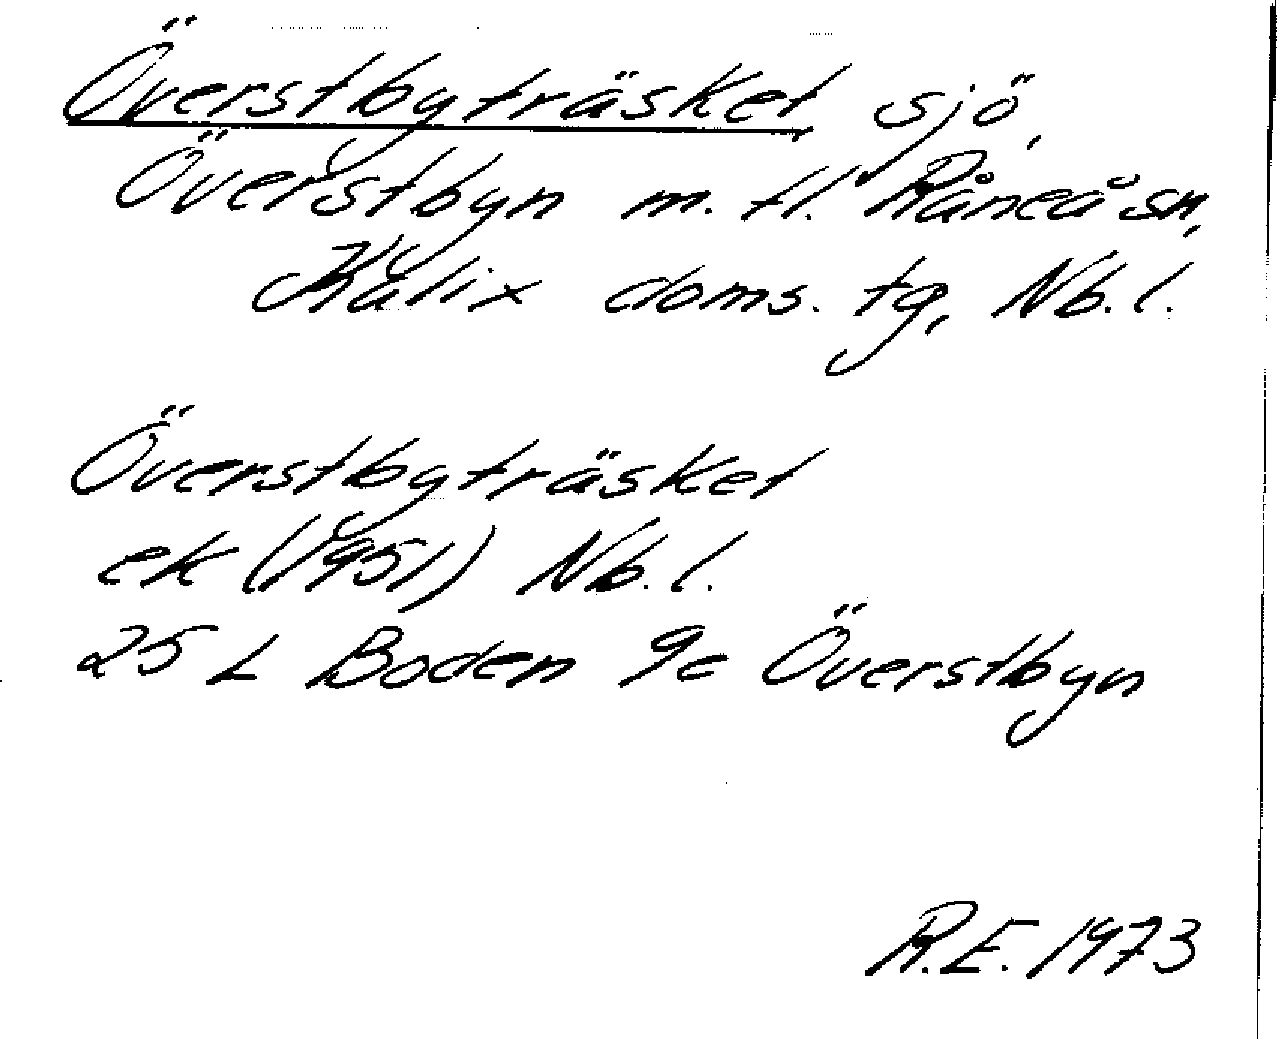 Överstbyträsket, sjö,
Överstbyn m. fl. Råneå sn,
Kalix doms. tg, Nb. l.
Överstbyträsket
ek (1951) Nb. l.
25 L Boden 9c Överstbyn
R.E. 1973